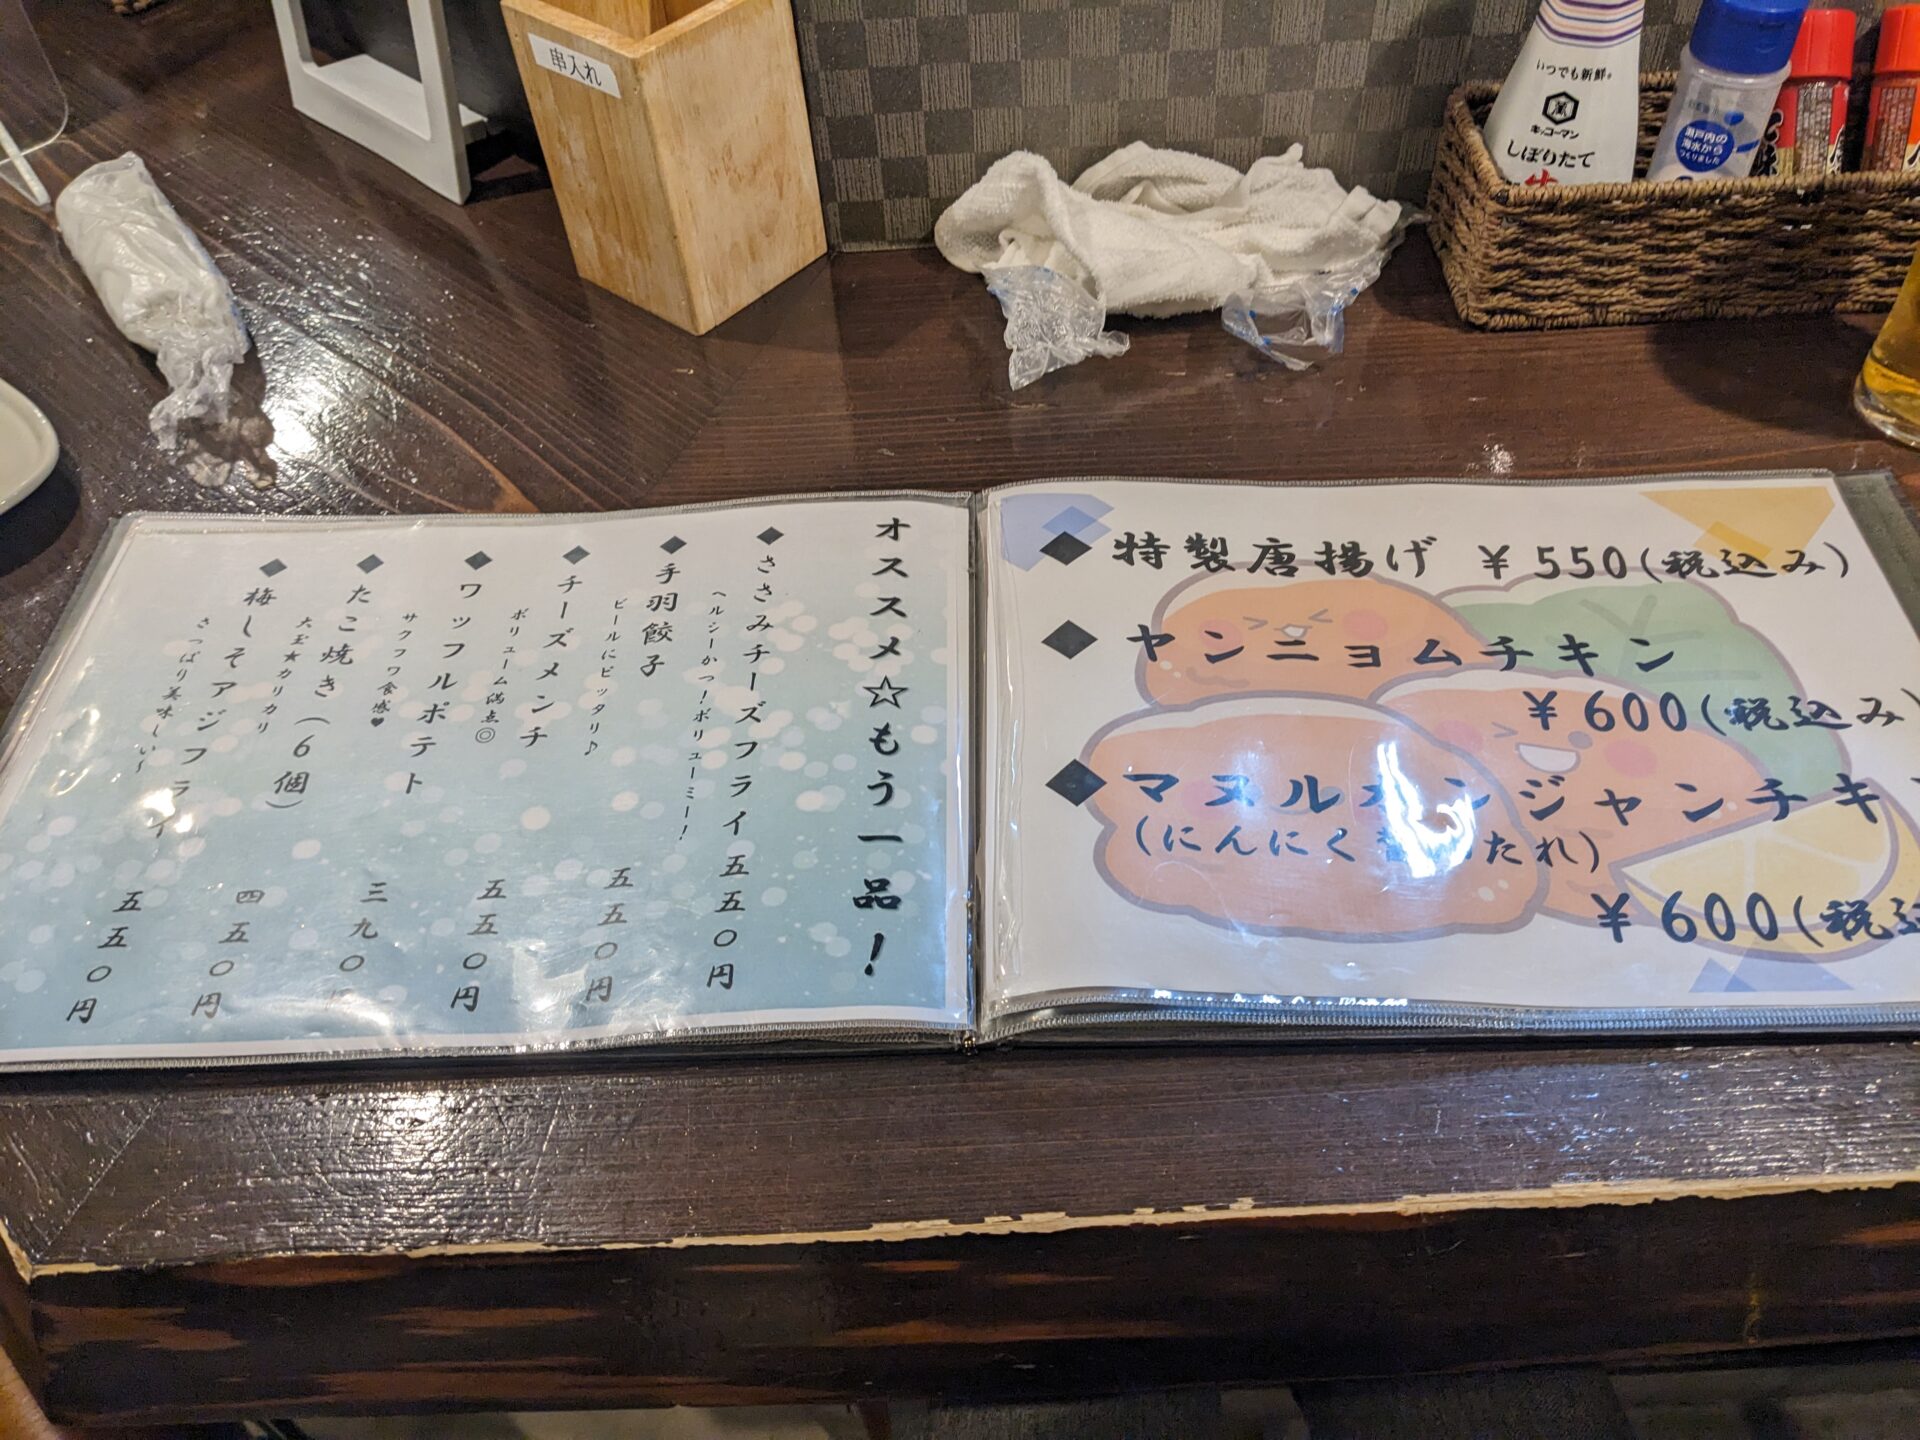 串入れ
いつでも新鮮®
キッコーマン
しぼりたて
瀬戸内の
海水から
つくりました
◆特製唐揚げ ¥550(税込み)
◆ヤンニョムチキン
¥600(税込み
◆マヌルカンジャンチキ
(にんにく たれ)
¥600(税込
オススメ☆もう一品!
◆ささみチーズフライ 五五〇円
ヘルシーかつ!ボリューミー!
◆手羽餃子 五五〇円
ビールにピッタリ♪
◆チーズメンチ 五五〇円
ボリューム満点◎
◆ワッフルポテト 三九〇円
サクフワ食感♥
◆たこ焼き(6個) 四五〇円
大玉★カリカリ
◆梅しそアジフライ 五五〇円
さっぱり美味しい~